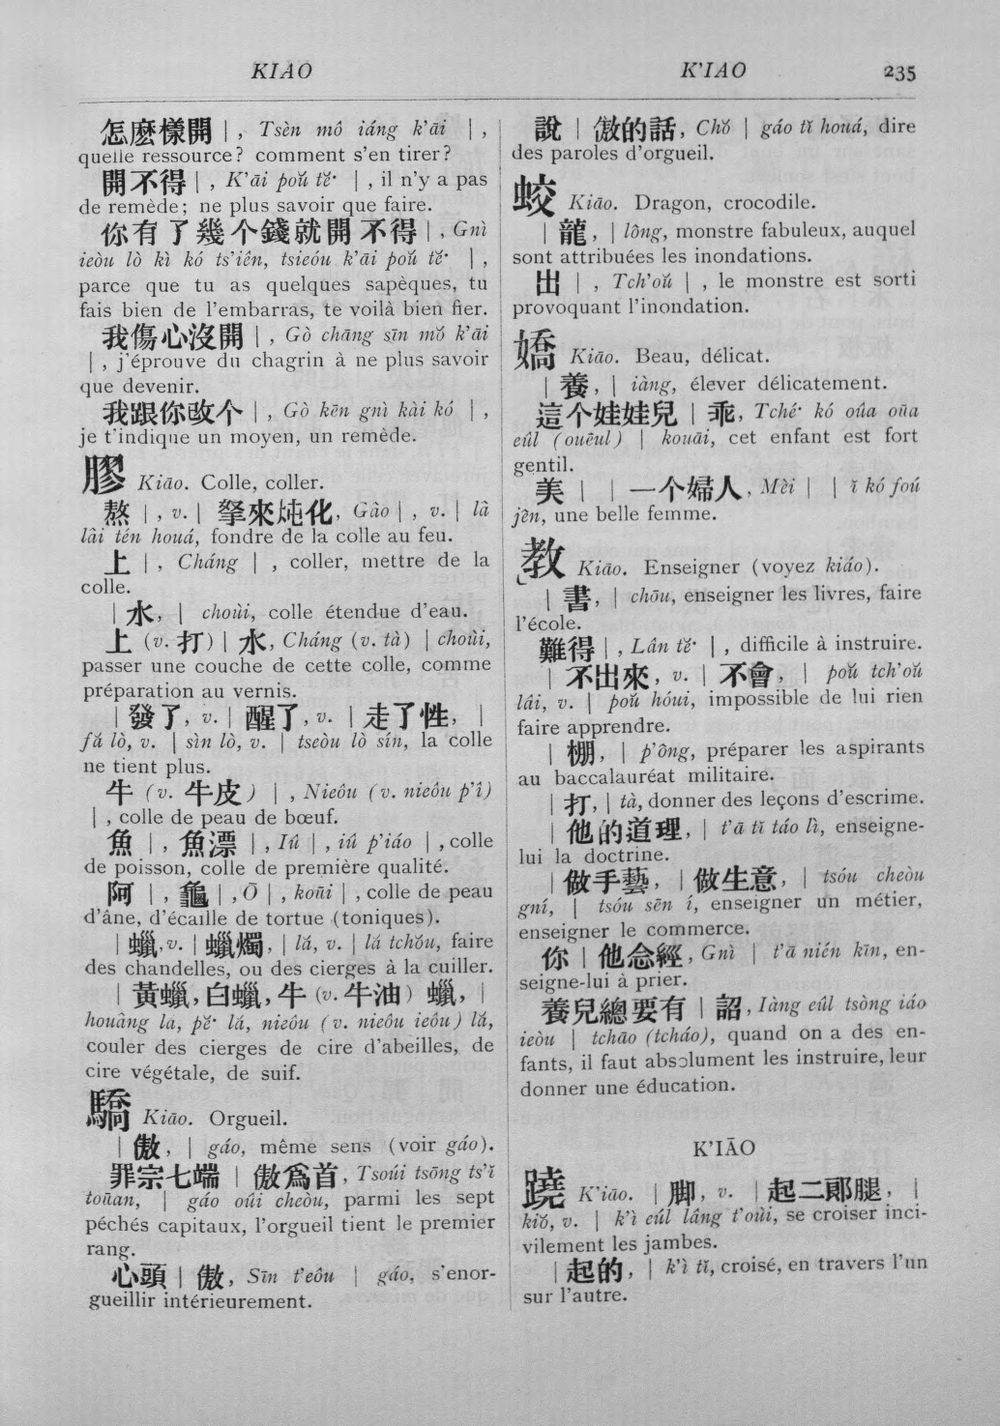 KIAO
K'IAO
235
怎麽樣開 | , Tsèn mô iáng k'āi | ,
quelle ressource? comment s'en tirer?
開不得 | , K'āi poŭ tĕ· | , il n'y a pas
de remède; ne plus savoir que faire.
你有了幾个錢就開不得 | , Gnì
ieòu lò kì kó ts'iên, tsieóu k'āi poŭ tĕ· | ,
parce que tu as quelques sapèques, tu
fais bien de l'embarras, te voilà bien fier.
我傷心沒開 | , Gò chāng sīn mŏ k'āi
| , j'éprouve du chagrin à ne plus savoir
que devenir.
我跟你改个 | , Gò kēn gnì kài kó | ,
je t'indique un moyen, un remède.
膠 Kiāo. Colle, coller.
熬 | , v. | 拏來炖化, Gâo | , v. | lâ
lâi tén houá, fondre de la colle au feu.
上 | , Cháng | , coller, mettre de la
colle.
| 水, | choùi, colle étendue d'eau.
上 (v. 打) | 水, Cháng (v. tà) | choùi,
passer une couche de cette colle, comme
préparation au vernis.
| 發了, v. | 醒了, v. | 走了性, |
fă lò, v. | sìn lò, v. | tseòu lò sín, la colle
ne tient plus.
牛 (v. 牛皮) | , Nieôu (v. nieôu p'î)
| , colle de peau de bœuf.
魚 | , 魚漂 | , Iû | , iû p'iáo | , colle
de poisson, colle de première qualité.
阿 | , 龜 | , Ō | , koūi | , colle de peau
d'âne, d'écaille de tortue (toniques).
| 蠟, v. | 蠟燭, | lă, v. | lă tchŏu, faire
des chandelles, ou des cierges à la cuiller.
| 黃蠟, 白蠟, 牛 (v. 牛油) 蠟, |
houâng lă, pĕ· lă, nieôu (v. nieôu ieôu) lă,
couler des cierges de cire d'abeilles, de
cire végétale, de suif.
驕 Kiāo. Orgueil.
| 傲, | gáo, même sens (voir gáo).
罪宗七端 | 傲爲首, Tsoúi tsōng ts'ĭ
toūan, | gáo oûi cheòu, parmi les sept
péchés capitaux, l'orgueil tient le premier
rang.
心頭 | 傲, Sīn t'eôu | gáo, s'enor-
gueillir intérieurement.
說 | 傲的話, Chŏ | gáo tĭ houá, dire
des paroles d'orgueil.
蛟 Kiāo. Dragon, crocodile.
| 龍, | lông, monstre fabuleux, auquel
sont attribuées les inondations.
出 | , Tch'oŭ | , le monstre est sorti
provoquant l'inondation.
嬌 Kiāo. Beau, délicat.
| 養, | iàng, élever délicatement.
這个娃娃兒 | 乖, Tché· kó oûa oūa
eûl (ouêul) | kouāi, cet enfant est fort
gentil.
美 | | 一个婦人, Mèi | | ĭ kó foú
jên, une belle femme.
教 Kiāo. Enseigner (voyez kiáo).
| 書, | chōu, enseigner les livres, faire
l'école.
難得 | , Lân tĕ· | , difficile à instruire.
| 不出來, v. | 不會, | poŭ tch'oŭ
lâi, v. | poŭ hóui, impossible de lui rien
faire apprendre.
| 棚, | p'ông, préparer les aspirants
au baccalauréat militaire.
| 打, | tà, donner des leçons d'escrime.
| 他的道理, | t'ā tĭ táo lì, enseigne-
lui la doctrine.
| 做手藝, | 做生意, | tsóu cheòu
gní, | tsóu sēn í, enseigner un métier,
enseigner le commerce.
你 | 他念經, Gnì | t'ā nién kīn, en-
seigne-lui à prier.
養兒總要有 | 詔, Iàng eûl tsòng iáo
ieòu | tchāo (tcháo), quand on a des en-
fants, il faut absolument les instruire, leur
donner une éducation.
K'IĀO
蹺 K'iāo. | 脚, v. | 起二郞腿, |
kiŏ, v. | k'ì eúl lâng t'oùi, se croiser inci-
vilement les jambes.
| 起的, | k'ì tĭ, croisé, en travers l'un
sur l'autre.